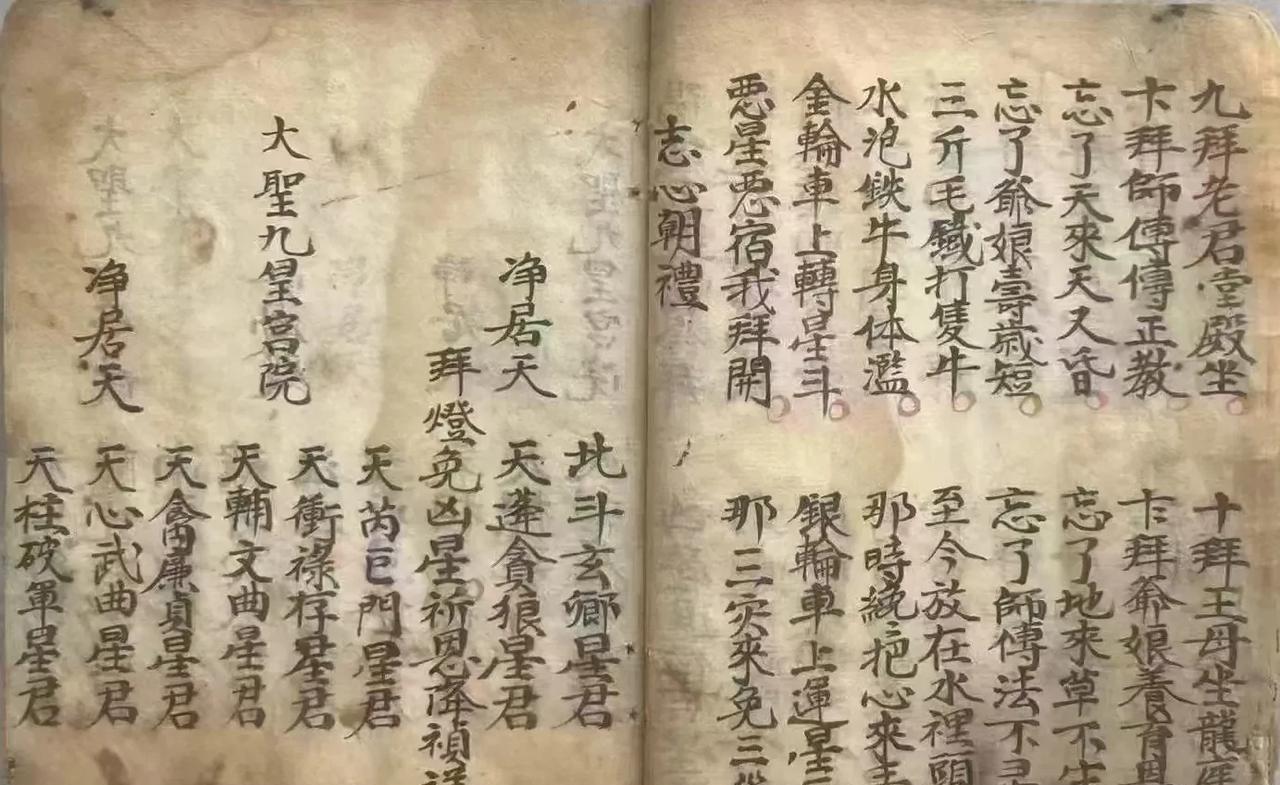 九拜老君堂殿坐。 十拜王母坐龍
卞拜師傅傳正教。 卞拜爺娘養育
忘了天來天又昏。 忘了地來草不
忘了爺娘壽歲短。 忘了師傅法不
三斤毛鐵打隻牛。 至今放在水裡頭
水泡鉄牛身体濫。 那時繞把心來
金輪車上轉星斗。 銀輪車上運星
悪星悪宿我拜開。 那三灾來免三
志心朝禮
北斗玄鄉星君
净居天 天蓬貪狼星君
拜燈免凶星祈恩降禎
天芮巨門星君
天衝祿存星君
大聖九皇宮院
天輔文曲星君
天禽廉貞星君
净居天 天心武曲星君
天柱破軍星君